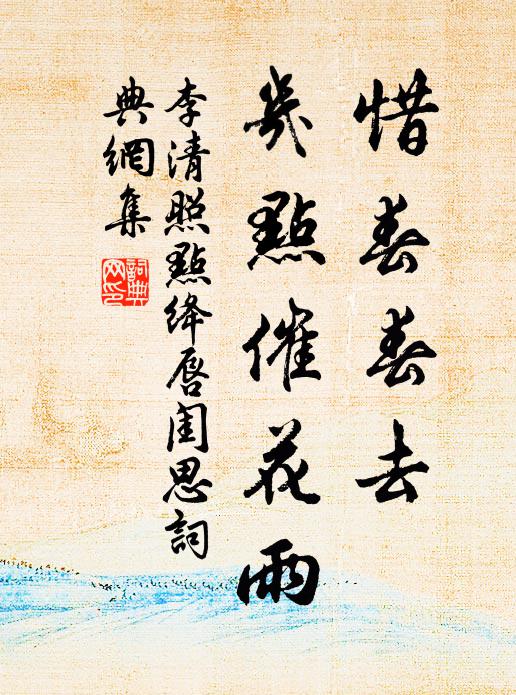 惜春春去
幾點催花雨
李清照點绛唇閨思詞
典網集
詞典網印